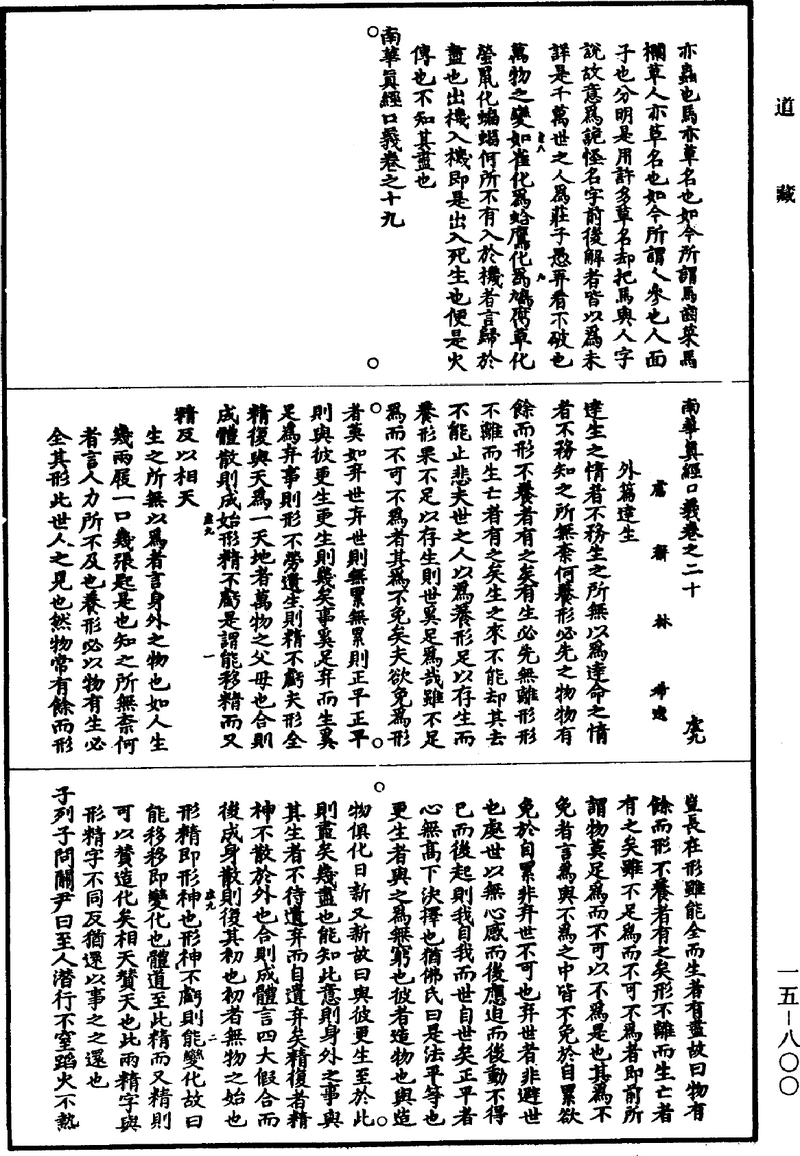 道藏
亦蟲也馬亦草名也如今所謂馬齒菜馬
欄草人亦草名也如今所謂人參也人面
子也分明是用許多草名却把馬與人字
說故意爲詭怪名字前後解者皆以爲未
詳是千萬世之人爲莊子愚弄看不破也
萬物之變如雀化爲蛤鷹化爲鳩腐草化
螢鼠化蝙蝠何所不有入於機者言歸於
盡也出機入機即是出入死生也便是火
傳也不知其盡也
南華真經口義卷之十九
南華真經口義卷之二十
虛九
鬳齋林希逸
外篇達生
達生之情者不務生之所無以爲達命之情
者不務知之所無奈何養形必先之物物有
餘而形不養者有之矣有生必先無離形形
不離而生亡者有之矣生之來不能却其去
不能止悲夫世之人以爲養形足以存生而
養形果不足以存生則世奚足爲哉雖不足
爲而不可不爲者其爲不免矣夫欲免爲形
者莫如弃世弃世則無累無累則正平正平
則與彼更生更生則幾矣事奚足弃而生奚
足爲弃事則形不勞遺生則精不虧夫形全
精復與天爲一天地者萬物之父母也合則
成體散則成始形精不虧是謂能移精而又
精反以相天
生之所無以爲者言身外之物也如人生
幾兩屐一口幾張匙是也知之所無奈何
者言人力所不及也養形必以物有生必
全其形此世人之見也然物常有餘而形
豈長在形雖能全而生者有盡故曰物有
餘而形不養者有之矣形不離而生亡者
有之矣雖不足爲而不可不爲者即前所
謂物莫足爲而不可以不爲是也其爲不
免者言爲與不爲之中皆不免於自累欲
免於自累非弃世不可也弃世者非避世
也處世以無心感而後應迫而後動不得
已而後起則我自我而世自世矣正平者
心無高下決擇也猶佛氏曰是法平等也
更生者與之爲無窮也彼者造物也與造
物俱化日新又新故曰與彼更生至於此
則盡矣幾盡也能知此意則身外之事與
其生者不待遺弃而自遺弃矣精復者精
神不散於外也合則成體言四大假合而
後成身散則復其初也初者無物之始也
形精即形神也形神不虧則能變化故曰
能移移即變化也體道至此精而又精則
可以贊造化矣相天贊天也此兩精字與
形精字不同反猶還以事之之還也
子列子問關尹曰至人潛行不窒蹈火不熱
一五－八〇〇